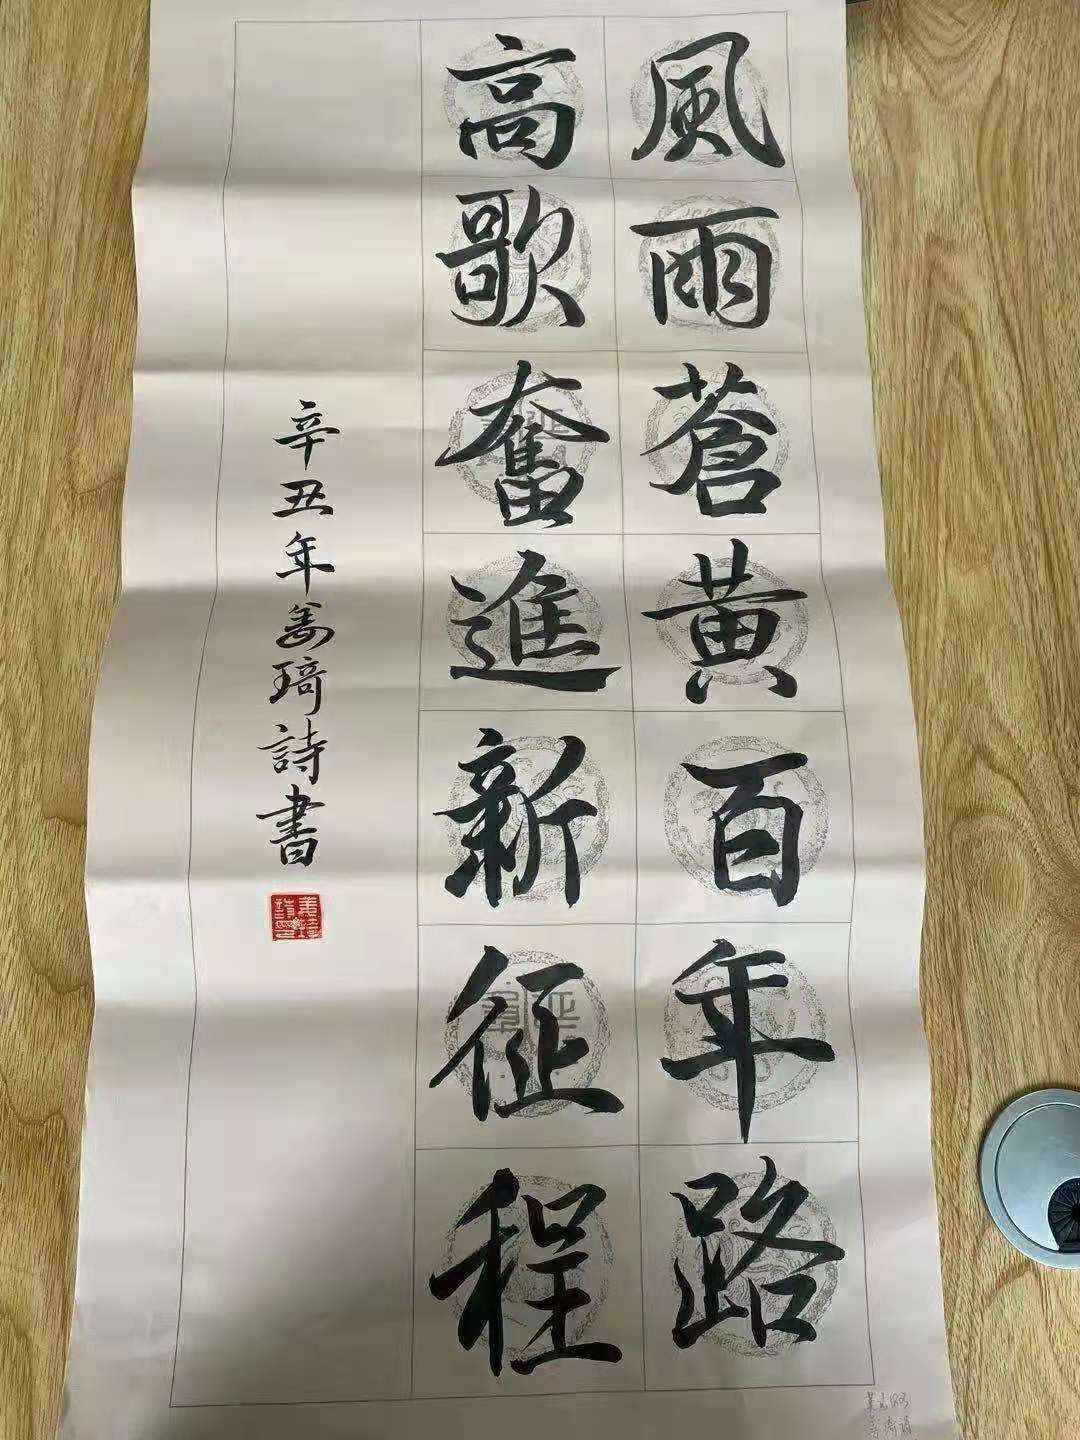 風雨蒼黄百年路
高歌奮進新征程
辛丑年姜琦詩書